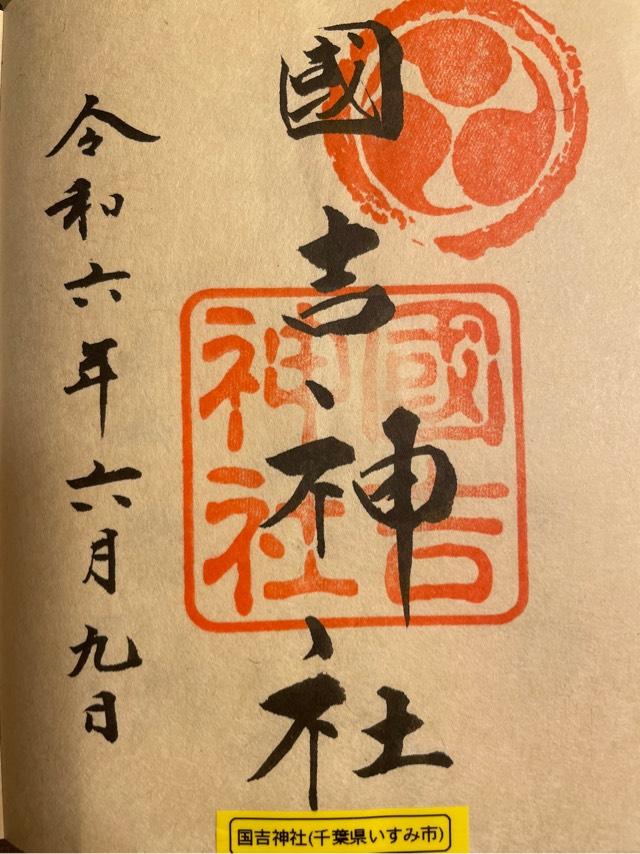 國吉神社
國吉神社
令和六年六月九日
国吉神社(千葉県いすみ市)